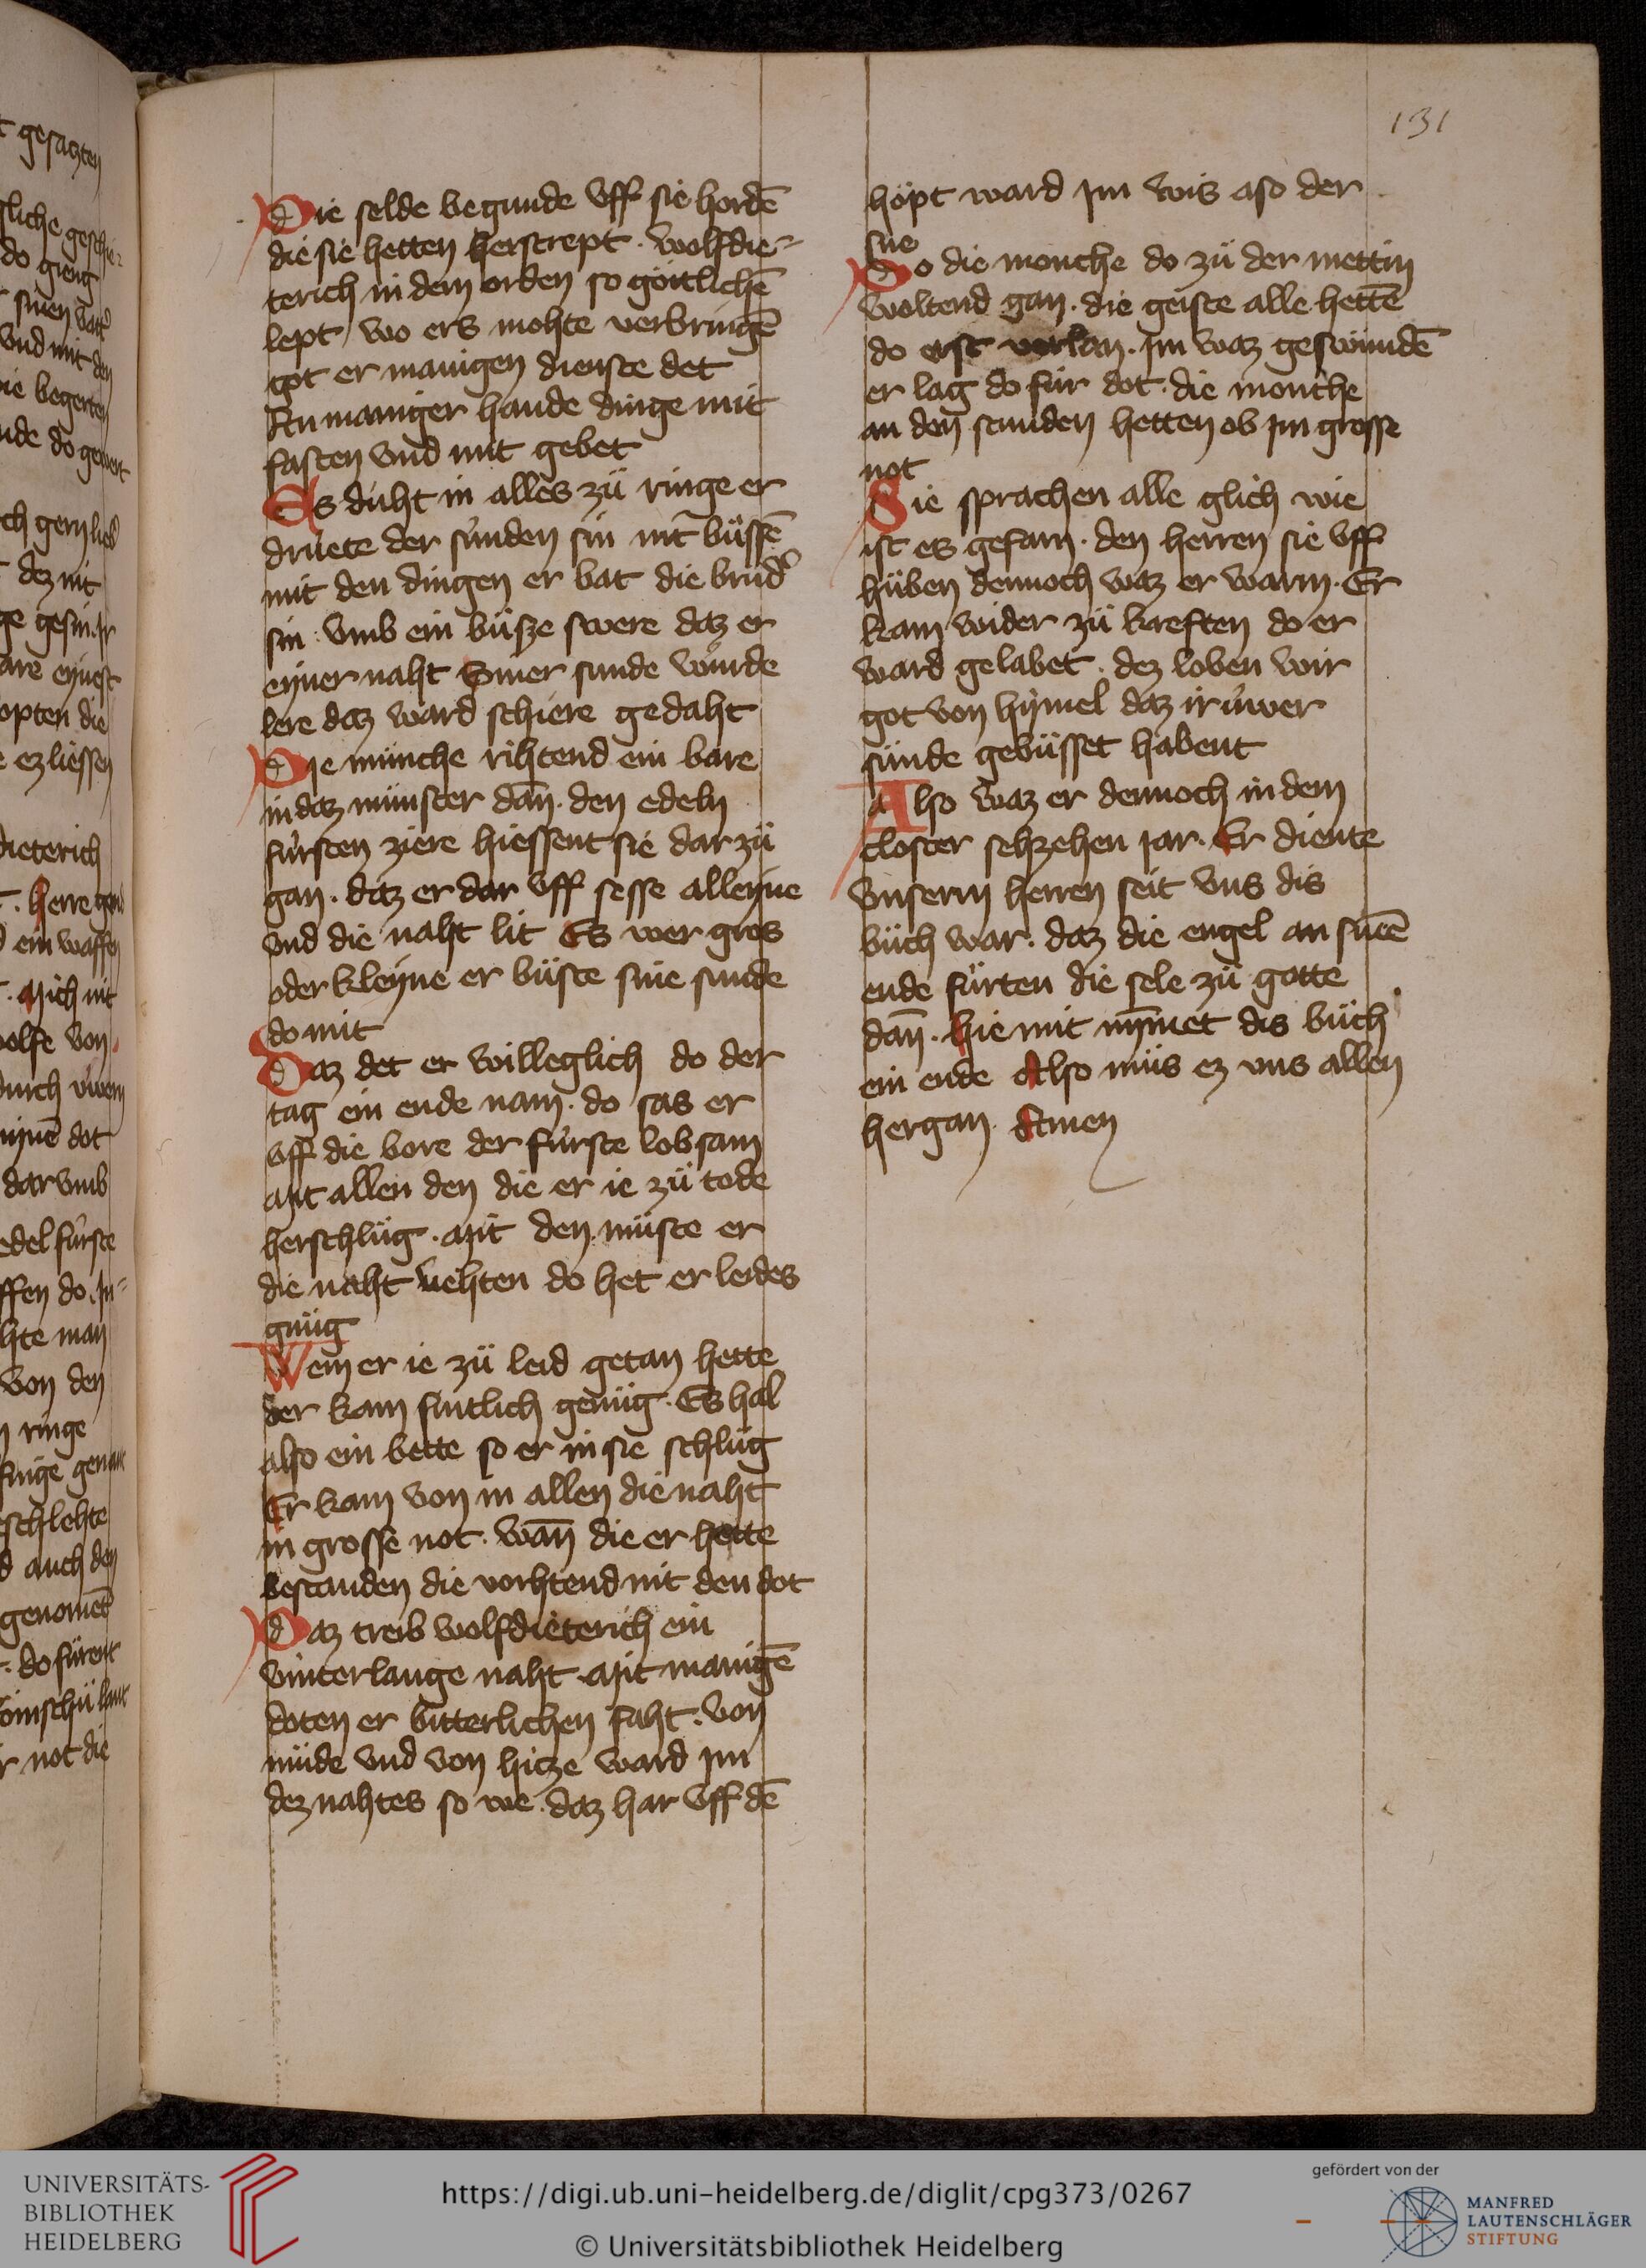 131
Die selde begunde vff sie hordē
die sie hetten herscrept . wolfdie-
terich in dem orden so götlichē
lept / wo ers mohte verbringē
got er manigen dienste det
An maniger hande dinge mit
fasten vnd mit gebet
Es duht in alles zü ringe er
druete der sünden sin nit büssē
mit den dingen er bat die brüd
sin . vmb ein büsze swere daz er
eyner naht siner sunde würde
lere daz ward schiere gedaht
Die münche rihtend ein bare
in daz münster dan̄ . den edeln
fürsten ziere hiessent sie dar zü
gan . daz er dar vff sesse alleyne
vnd die naht lit Es wer gros
oder kleyne er büste sine sunde
do mit
Daz det er willeglich do der
tag ein ende nam . do sas er
vff die bore der fürste lobsam
Mit allen den die er ie zü tode
herschlüg . Mit den müste er
die naht vehten do het er leides
gnüg
Wem er ie zü leid getan hette
der kam sintlich genüg . Es hal
also ein bette so er in sie schlüg
Er kam von in allen die naht
in grosse not . wan̄ die er hette
bestanden die vorhtend nit den dot
Daz treib wolfdieterich ein
winterlange naht . Mit manigē
doten er bitterlichen faht . von
müde vnd von hicze ward im
dez nahtes so we . daz har vff dē
höpt ward im wis aso der
sne
Do die monche do zü der mettin
woltend gan . die geiste alle hettē
do erst verlan . im waz geswundē
er lag do für dot . die monche
an den stunden hetten ob im grosse
not
Sie sprachen alle glich wie
ist es gefarn . den herren sie vff
hüben dennoch waz er warm . Er
kam wider zü kreften do er
ward gelabet . dez loben wir
got von hymel daz ir üwer
sünde gebüsset habent
Also waz er dennoch in dem
closter sehzehen jar . Er diente
vnserm herren seit vns dis
büch war . daz die engel an sinē
ende fürten die sele zü gotte
dan̄ . hie mit nȳmet dis büch
ein ende Also müs ez vns allen
hergan . Amen
UNIVERSITÄTS-
BIBLIOTHEK
HEIDELBERG
https://digi.ub.uni-heidelberg.de/diglit/cpg373/0267
© Universitätsbibliothek Heidelberg
gefördert von der
MANFRED
LAUTENSCHLÄGER
STIFTUNG